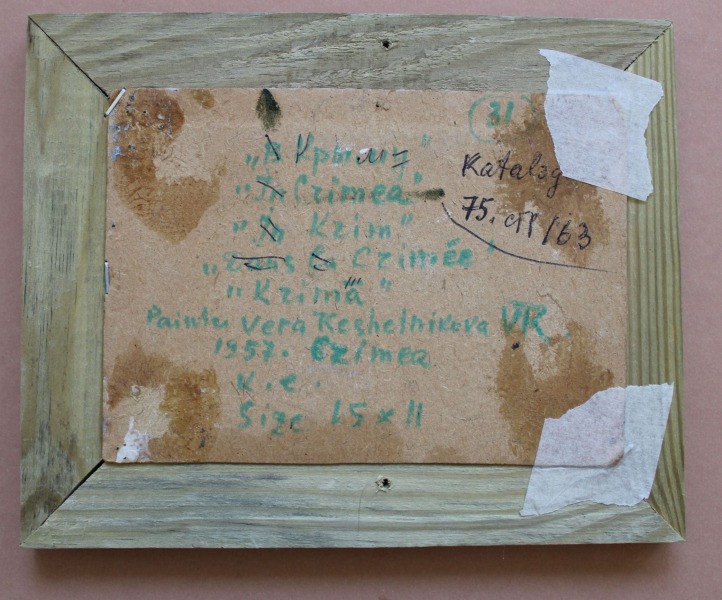 31
Katalog
75. стр/63
„В Крыму"
„In Crimea"
„In Krim"
„Dans la Crimée"
„Krimā"
Painter Vera Keshelnikova VR.
1957. Crimea
K. e.
Size 15 x 11